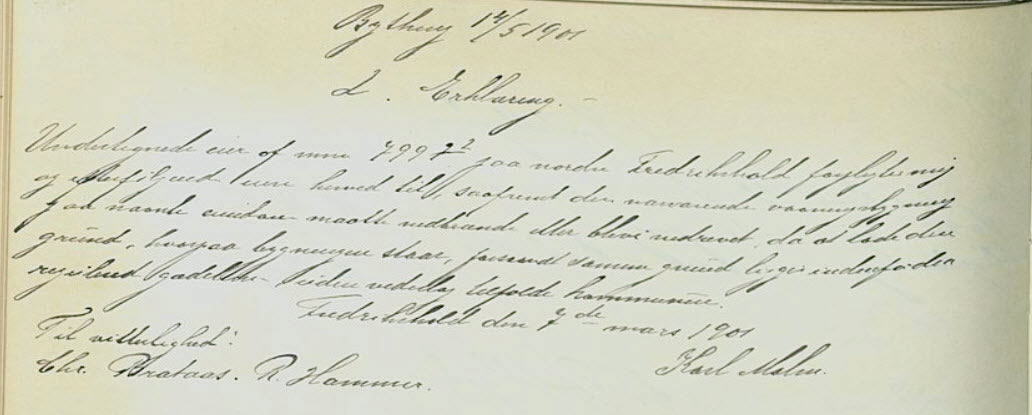 Bything 14/5 1901
2. Erklæring.-
Undertegnede eier af mnr 799 72 paa nordre Fredrikshald forpligter mig
og efterfølgende eiere herved til, saafremt den nuværende vaaningsbygning
paa nævnte eiendom maatte nedbrænde eller blive nedrevet, da at lade den
grund, hvorpaa bygningen staar, forsaavidt samme grund ligger indenfor den
regulerede gadelinie uden vederlag tilfalde kommunen.
Fredrikshald den 7de mars 1901
Karl Malm.
Til vitterlighed:
Chr. Brataas. R. Hammer.